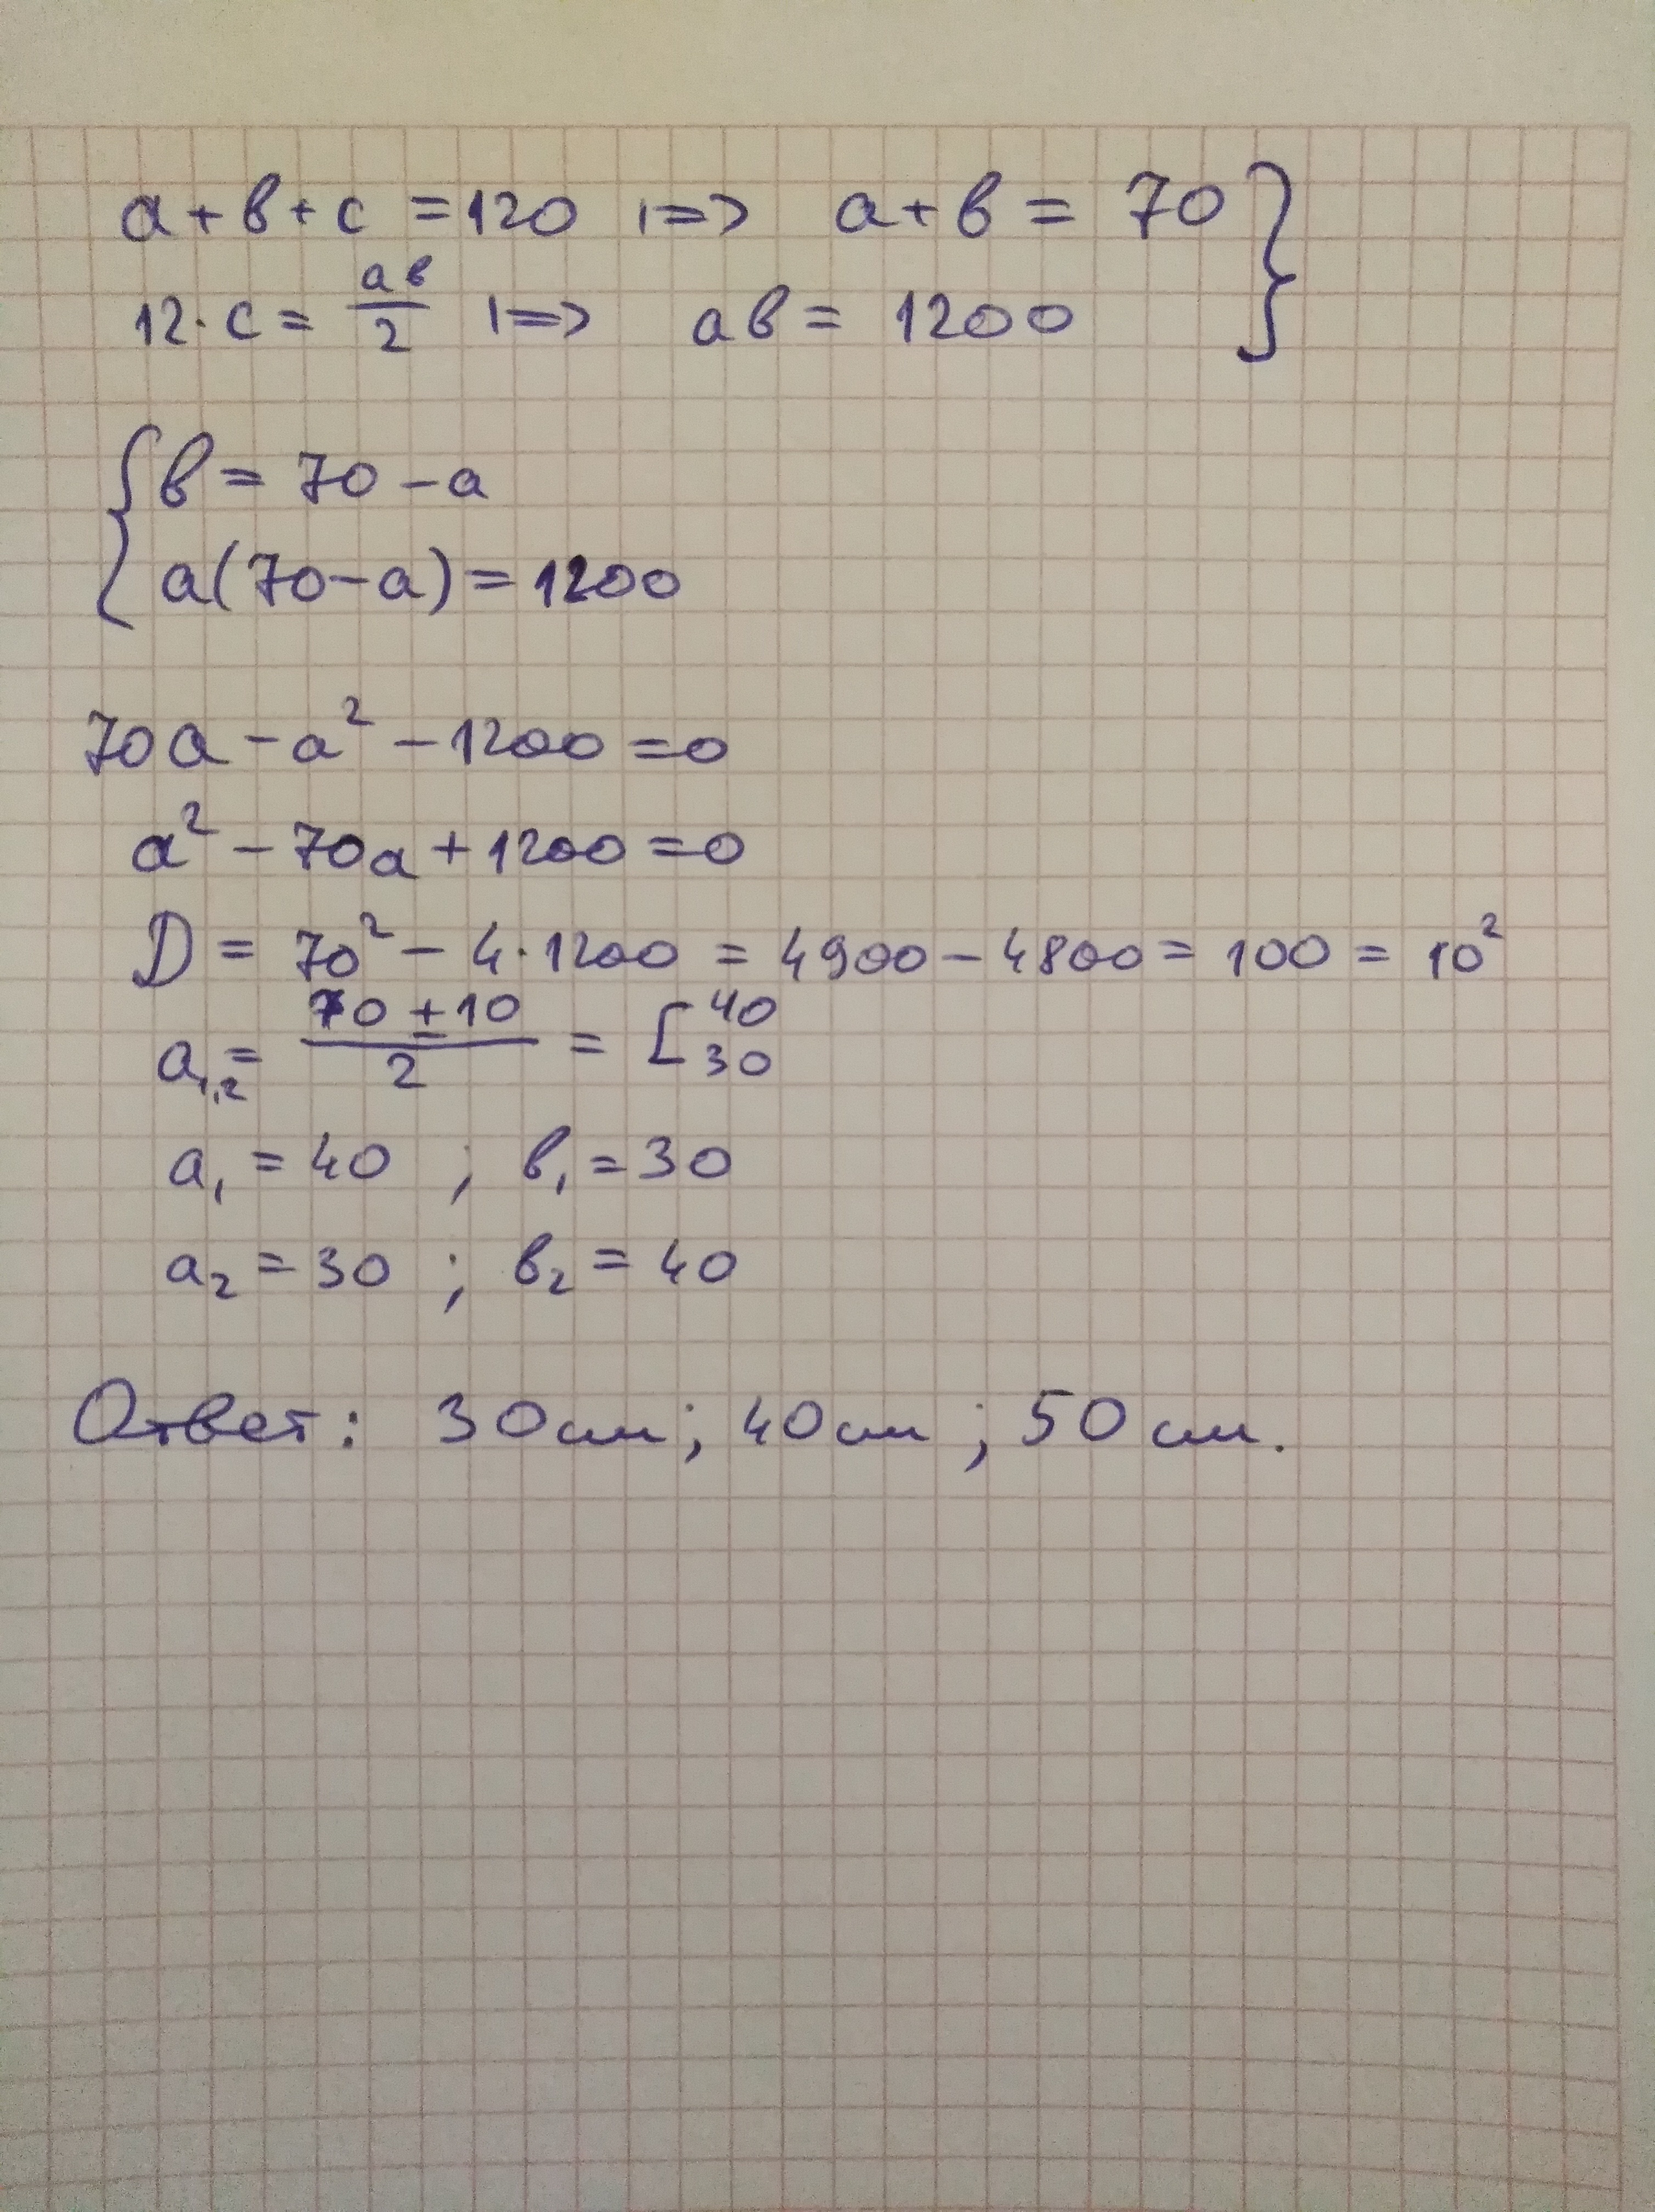 a + в + c = 120 |=> a + в = 70 }
12 · c = aв/2 |=> aв = 1200
{ в = 70 - a
a(70 - a) = 1200
70a - a² - 1200 = 0
a² - 70a + 1200 = 0
D = 70² - 4 · 1200 = 4900 - 4800 = 100 = 10²
a₁,₂ = (70 ± 10)/2 = [ 40 30
a₁ = 40 ; в₁ = 30
a₂ = 30 ; в₂ = 40
Ответ: 30 см; 40 см ; 50 см.